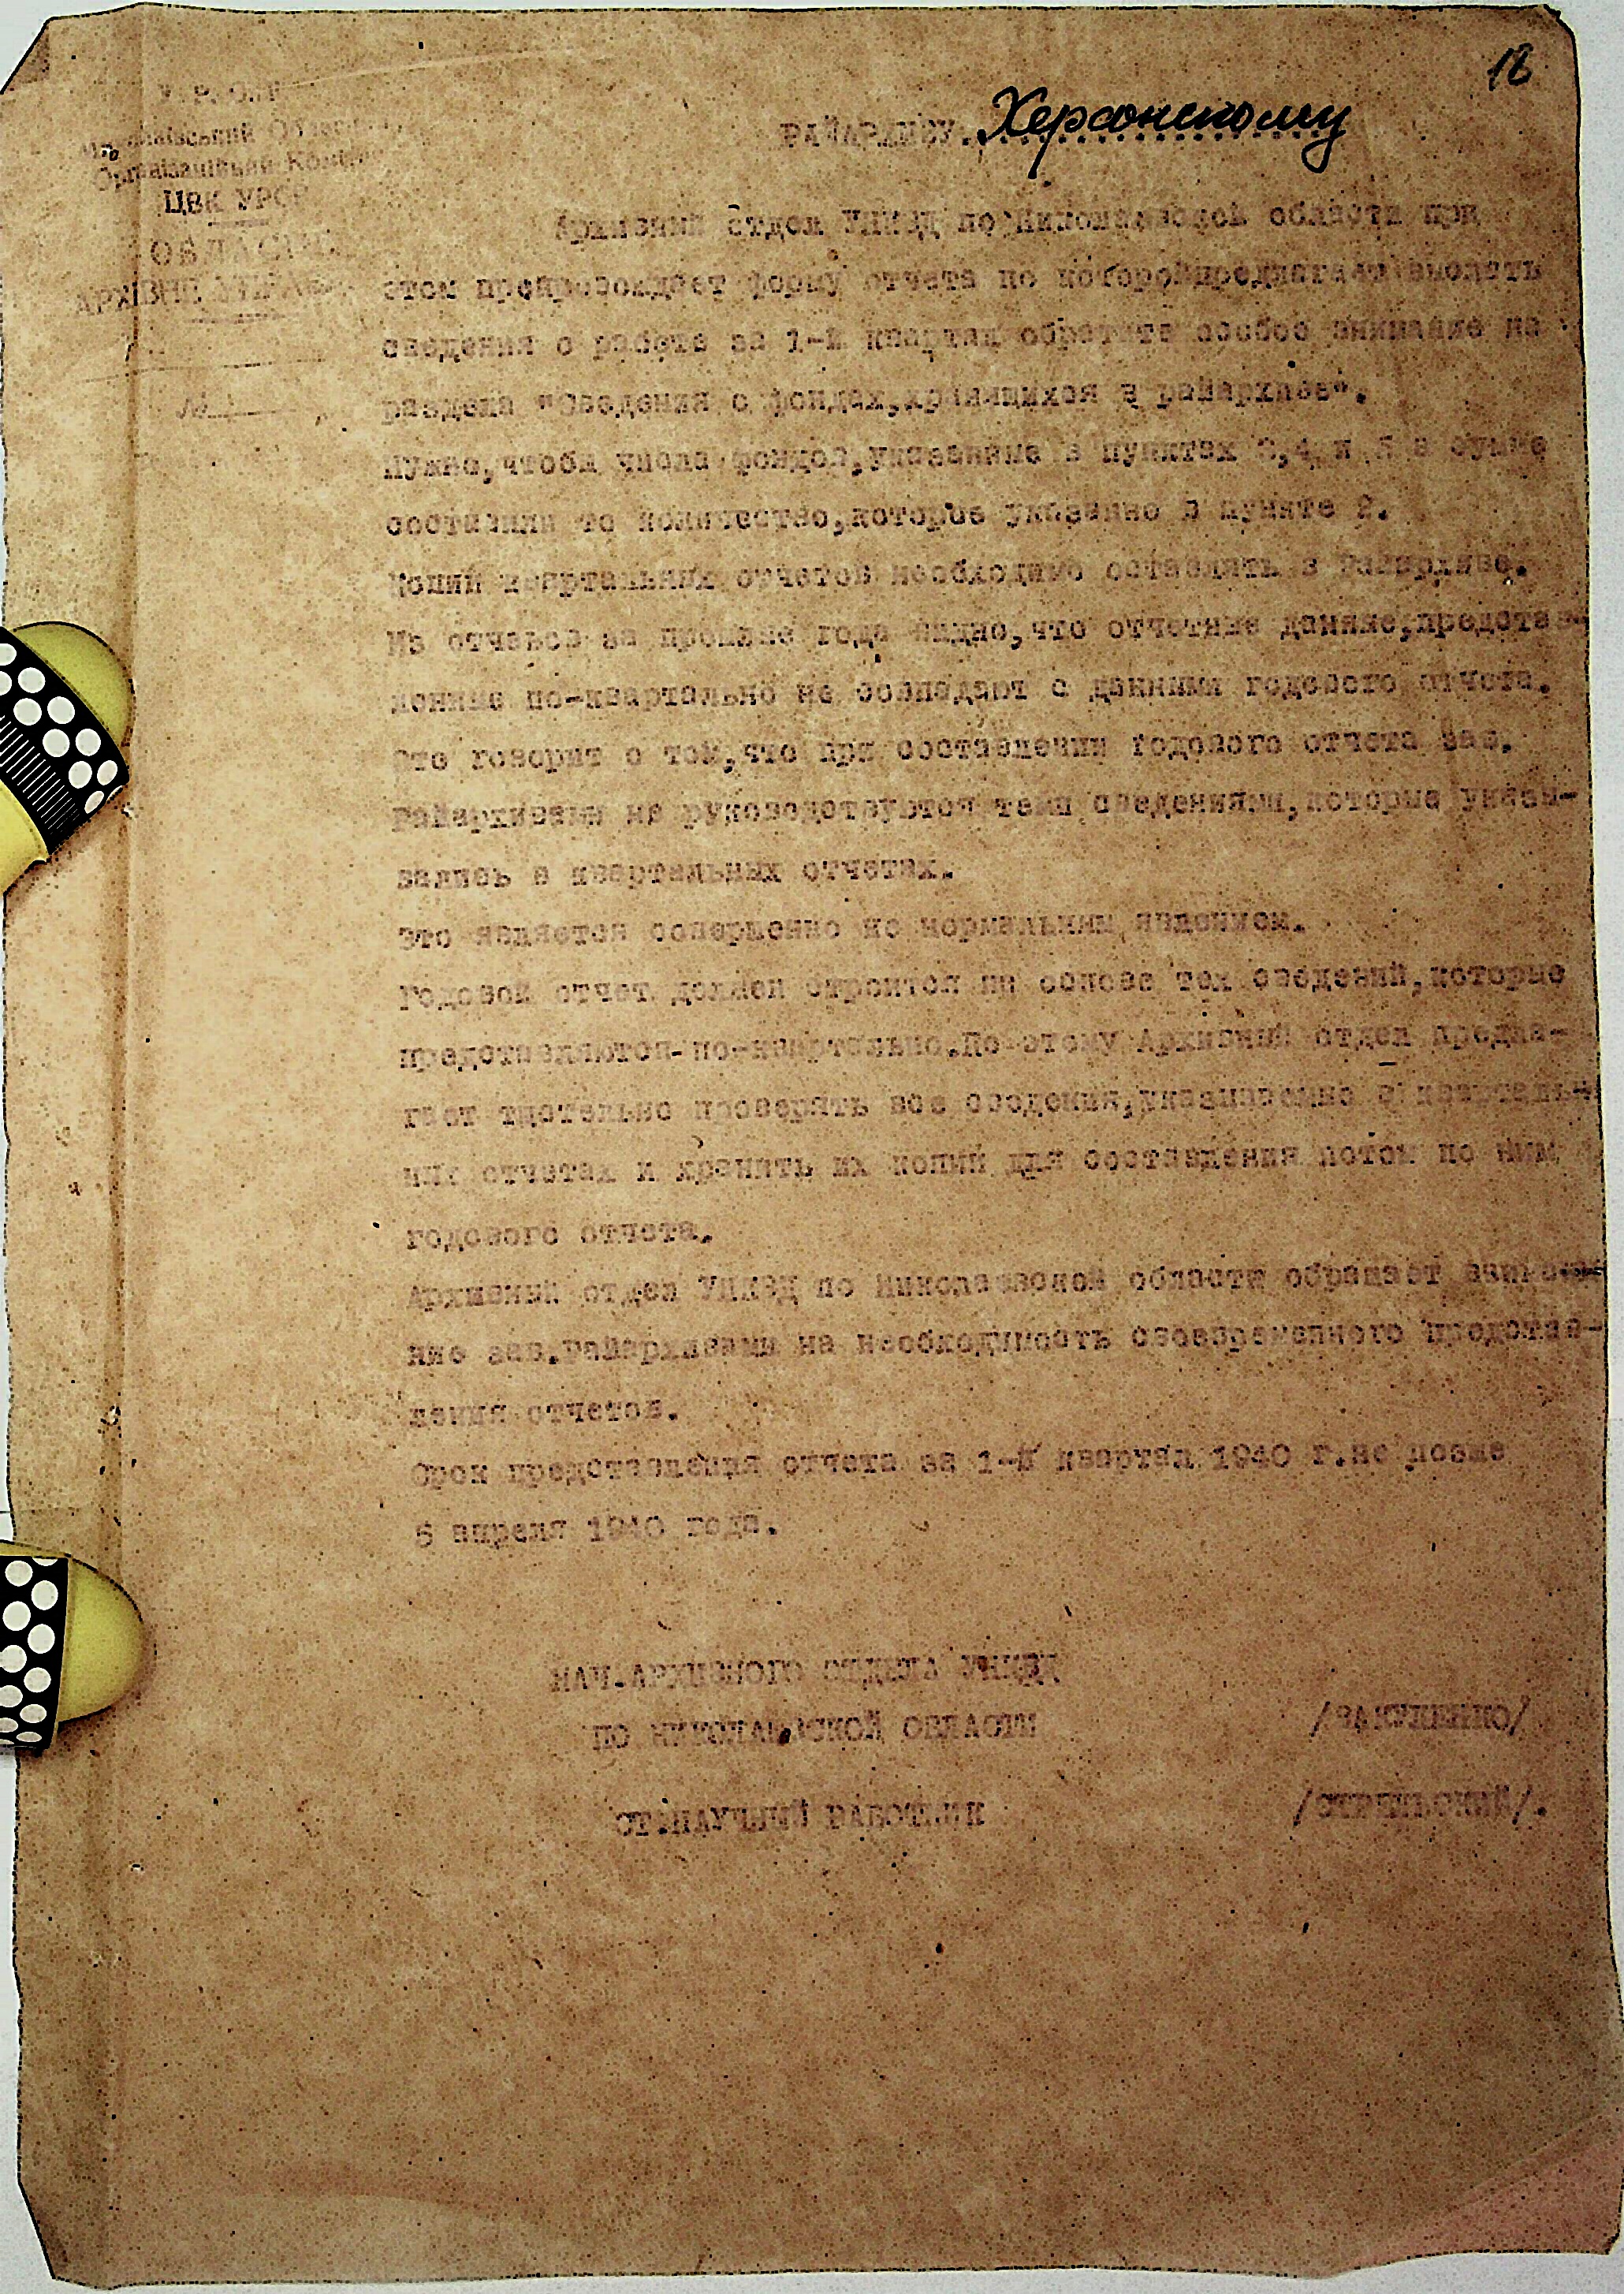 18
У.Р.С.Р.
Миколаївський Обласний
Організаційний Комітет
ЦВК УРСР
ОБЛАСНЕ
АРХІВНЕ УПРАВЛ
№
РАЙАРХИВУ. Херсонскому
Архивный отдел УНКВД по Николаевской области при
этом препровождает форму отчета по которой предлагает выслать
сведения о работе за 1-й квартал обратите особое внимание на
раздела "Сведения о фондах,хранящихся в райархиве".
Нужно,чтобы числа фондов,указанные в пунктах 3,4 и 5 в сумме
составили то количество,которое указанно в пункте 2.
Копий квартальных отчетов необходимо оставлять в Райархиве.
Из отчетов за прошлые года видно,что отчетные данные,представ-
ленные по-квартально не совпадают с данными годового отчета.
Это говорит о том,что при составлении годового отчета зав.
Райархивами не руководствуются теми сведениями,которые указы-
вались в квартальных отчетах.
Это является совершенно не нормальным явлением.
Годовой отчет должен строится на основе тех сведений,которые
представляются по-квартально.По этому Архивный отдел предла-
гает тщательно проверять все сведения,указываемые в кварталь-
ных отчетах и хранить их копий для составления потом по ним
годового отчета.
Архивный отдел УНКВД по Николаевской области обращает внима-
ние зав.Райархивами на необходимость своевременного представ-
ления отчетов.
Срок представления отчета за 1-й квартал 1940 г.не позже
5 апреля 1940 года.
НАЧ.АРХИВНОГО ОТДЕЛА УНКВД
ПО НИКОЛАЕВСКОЙ ОБЛАСТИ /ВАКУЛЕНКО/
СТ.НАУЧНЫЙ РАБОТНИК /СТРЕЛЬСКИЙ/.